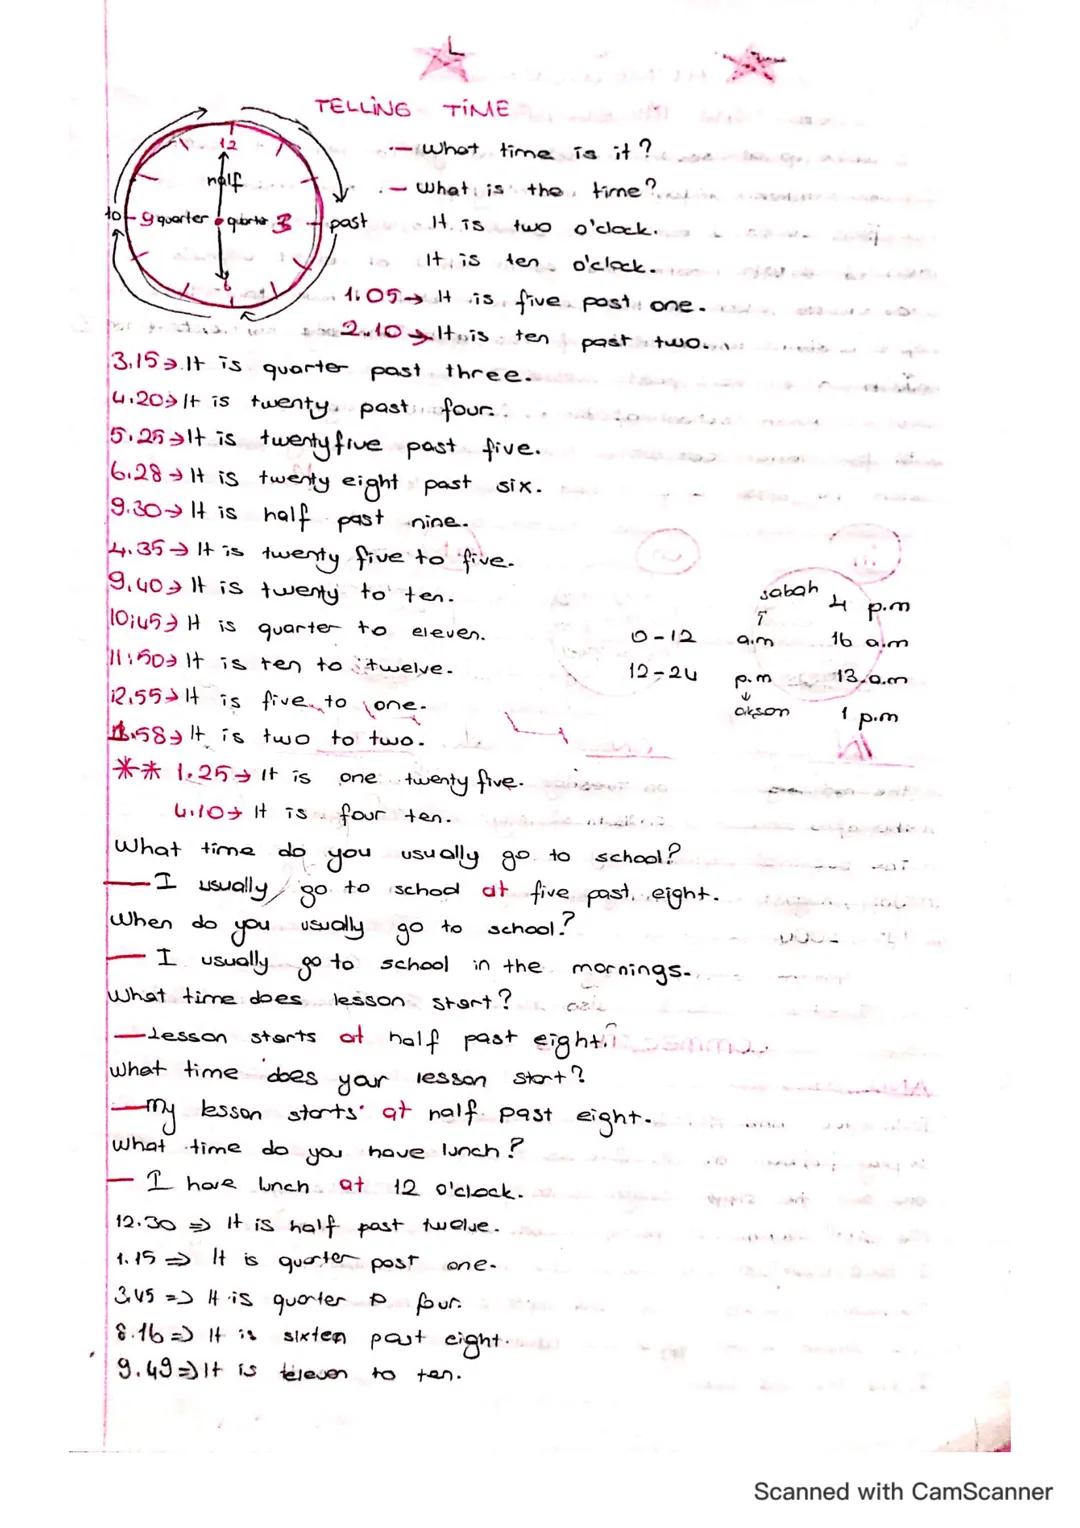 TELLING TIME
12
half
to 9 quarter quarter 3 past
6
- What time is it?
- What is the time?
It is two o'clock.
It is ten o'clock.
1.05→ It is five past one.
2.10→ It is ten past two.
3.15→ It is quarter past three.
4.20→ It is twenty past four.
5.25→ It is twenty five past five.
6.28→ It is twenty eight past six.
9.30→ It is half past nine.
4.35→ It is twenty five to five.
9.40→ It is twenty to ten.
10:45→ It is quarter to eleven.
11:50→ It is ten to twelve.
12.55→ It is five to one.
1.58→ It is two to two.
sabah
↑
0-12 a.m
12-24 p.m
↓
akşam
4 p.m
16 a.m
13.a.m
1 p.m
** 1.25→ It is one twenty five.
4.10→ It is four ten.
What time do you usually go to school?
- I usually go to school at five past eight.
When do you usually go to school?
- I usually go to school in the mornings.
What time does lesson start?
- Lesson starts at half past eight.
What time does your lesson start?
- My lesson starts at half past eight.
What time do you have lunch?
- I have lunch at 12 o'clock.
12.30 => It is half past twelve.
1.15 => It is quarter past one.
3.45 => It is quarter four.
8.16 => It is sixten past eight.
9.49 => It is eleven to ten.
Scanned with CamScanner